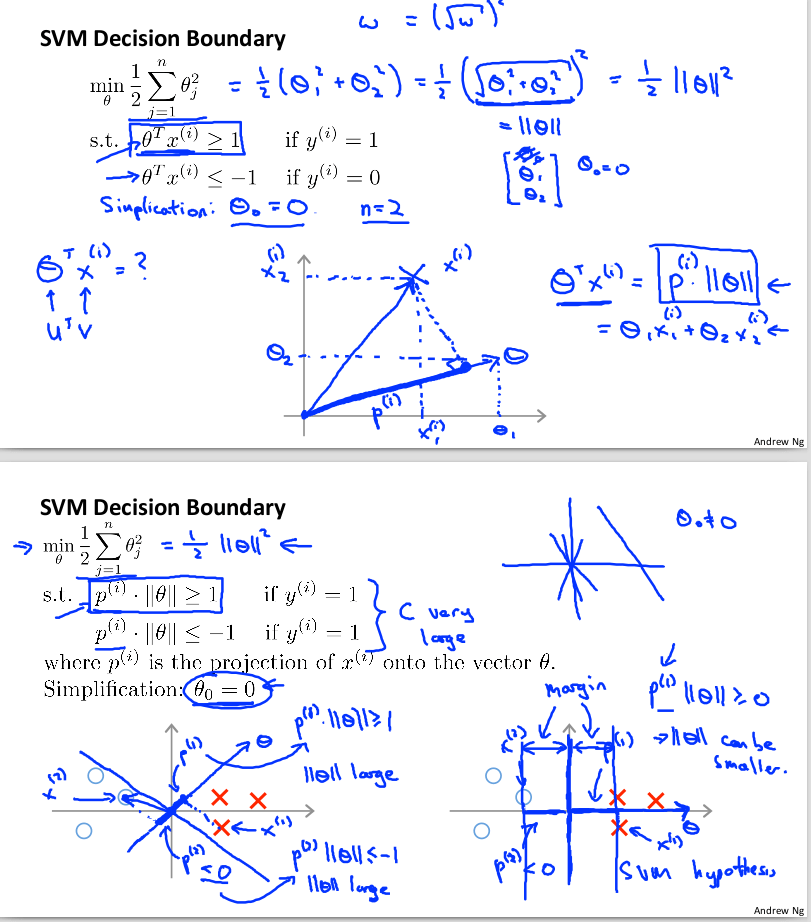 ω = (√ω)²
SVM Decision Boundary
min_θ 1/2 ∑_{j=1}^{n} θ_j² = 1/2 (θ₁² + θ₂²) = 1/2 (√θ₁² + θ₂²)² = 1/2 ||θ||²
= ||θ||
s.t. θᵀx⁽ⁱ⁾ ≥ 1 if y⁽ⁱ⁾ = 1
→ θᵀx⁽ⁱ⁾ ≤ −1 if y⁽ⁱ⁾ = 0
[θ₁ θ₂] θ₀=0
Simplication: θ₀ = 0 n=2
θᵀx⁽ⁱ⁾ = ?
↑ ↑
uᵀv
x₂⁽ⁱ⁾ x⁽ⁱ⁾
θ₂ θ
p⁽ⁱ⁾
x₁⁽ⁱ⁾ θ₁
θᵀx⁽ⁱ⁾ = p⁽ⁱ⁾·||θ|| ←
= θ₁x₁⁽ⁱ⁾ + θ₂x₂⁽ⁱ⁾ ←
Andrew Ng
SVM Decision Boundary
→ min_θ 1/2 ∑_{j=1}^{n} θ_j² = 1/2 ||θ||² ←
θ₀ ≠ 0
s.t. p⁽ⁱ⁾ · ||θ|| ≥ 1 if y⁽ⁱ⁾ = 1
p⁽ⁱ⁾ · ||θ|| ≤ −1 if y⁽ⁱ⁾ = 1
C very
large
where p⁽ⁱ⁾ is the projection of x⁽ⁱ⁾ onto the vector θ.
Simplification: θ₀ = 0 ←
p⁽¹⁾ θ
p⁽¹⁾·||θ|| ≥ 1
||θ|| large
x⁽²⁾
x⁽¹⁾
p⁽²⁾ < 0
p⁽²⁾ ||θ|| ≤ -1
||θ|| large
margin
p⁽¹⁾ ||θ|| ≥ 0
→ ||θ|| can be
smaller.
x⁽²⁾ (1)
θ
x⁽¹⁾
p⁽²⁾ < 0
SVM hypothesis
Andrew Ng